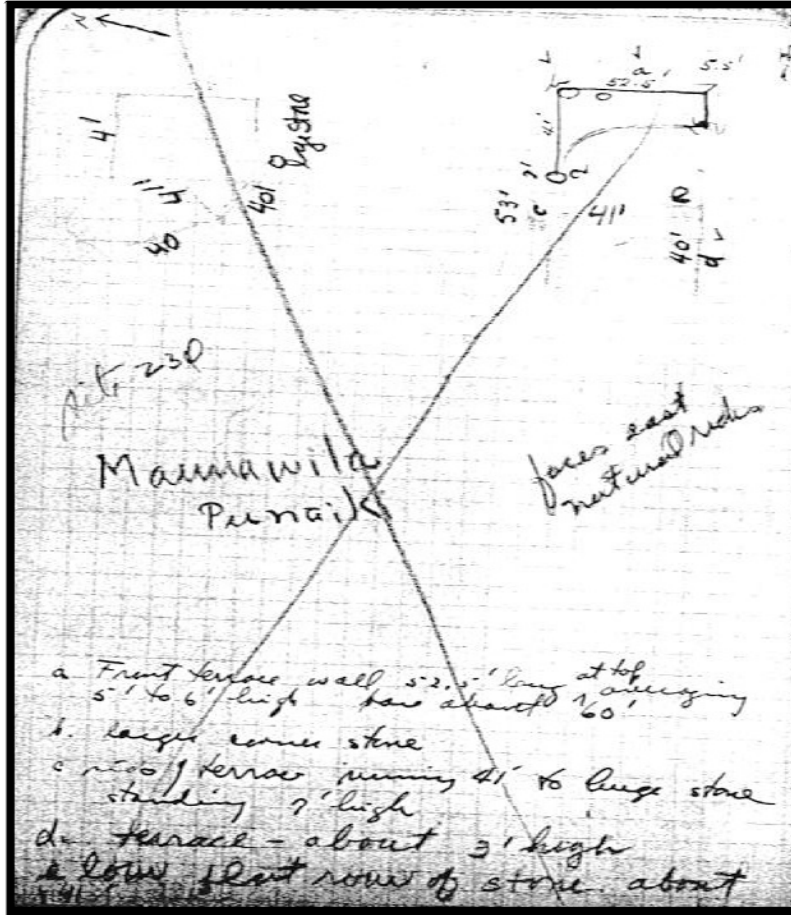 N
a
52.5'
5.5'
b
41'
7'
4'
40'
53'
c
41'
40'
d
e
site 230
Maunawila
Punaiki
faces east
natural
a Front terrace wall 52.5' long at top
5' to 6' high base about 60' averaging
b. large corner stone
c side of terrace running 41' to huge stone
standing 7' high
d. terrace - about 3' high
e low flat row of stone. about
41'